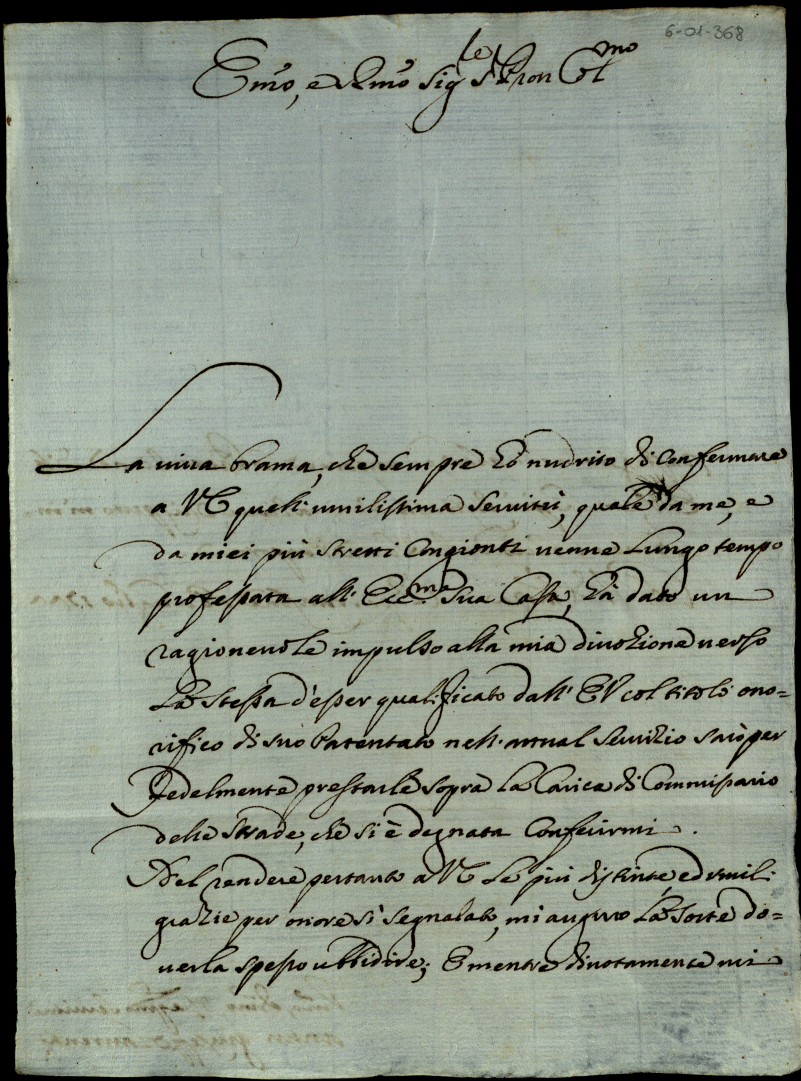 6-01-368
Emo, e Rmo Sig.re Pron Col.mo
La viva brama, che sempre hò nudrito di confermare
a VE quell'umilissima Servitù, quale da me, e
da miei più stretti Congionti venne lungo tempo
professata all'Ecc.ma Sua Casa, hà dato un
ragionevole impulso alla mia divozione verso
la stessa d'esser qualificato dall'EV col titolo ono=
rifico di suo Patentato nell'attual Servizio sarò per
fedelmente prestarle sopra la Carica di Commissario
delle Strade, che si è degnata Conferirmi.
Nel rendere pertanto a VE le più distinte, ed umili
grazie per onore sì segnalato, mi auguro la sorte do=
verla spesso ubbidire; E mentre divotamente mi